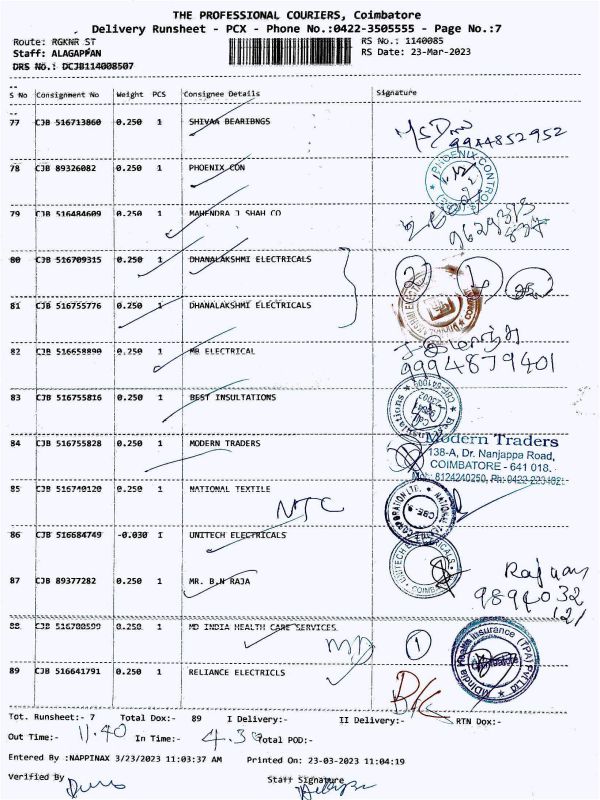 THE PROFESSIONAL COURIERS, Coimbatore
Delivery Runsheet - PCX - Phone No.:0422-3505555 - Page No.:7
Route: RGKNR ST RS No.: 1140085
Staff: ALAGAPPAN RS Date: 23-Mar-2023
DRS No.: DCJB114008507
S No Consignment No Weight PCS Consignee Details Signature
77 CJB 516713860 0.250 1 SHIVAA BEARIBNGS
9944852952
78 CJB 89326082 0.250 1 PHOENIX CON
PHOENIX CONTROLS
79 CJB 516484609 0.250 1 MAHENDRA J SHAH CO
80 CJB 516709315 0.250 1 DHANALAKSHMI ELECTRICALS
2 1
81 CJB 516755776 0.250 1 DHANALAKSHMI ELECTRICALS
82 CJB 516658890 0.250 1 MB ELECTRICAL
9994879401
83 CJB 516755816 0.250 1 BEST INSULTATIONS
84 CJB 516755828 0.250 1 MODERN TRADERS
Modern Traders
138-A, Dr. Nanjappa Road,
COIMBATORE - 641 018.
85 CJB 516740120 0.250 1 NATIONAL TEXTILE
NTC
86 CJB 516684749 -0.030 1 UNITECH ELECTRICALS
UNITECH ELECTRICALS
87 CJB 89377282 0.250 1 MR. B.N RAJA
88 CJB 516708599 0.250 1 MD INDIA HEALTH CARE SERVICES
MD 1
MDIndia Health Insurance (TPA) Pvt Ltd
89 CJB 516641791 0.250 1 RELIANCE ELECTRICLS
Tot. Runsheet:- 7 Total Dox:- 89 I Delivery:- II Delivery:- RTN Dox:-
Out Time:- 11.40 In Time:- 4.30 Total POD:-
Entered By :NAPPINAX 3/23/2023 11:03:37 AM Printed On: 23-03-2023 11:04:19
Verified By Staff Signature